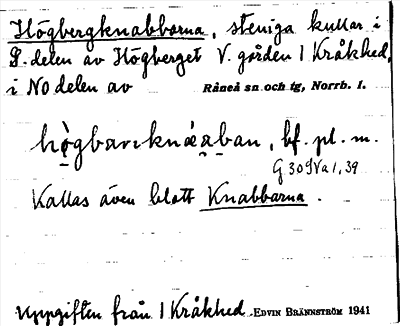 Högbergknabbarna, steniga kullar i
S. delen av Högberget V. gården 1 Kråkhed,
i NO delen av Råneå sn och tg, Norrb. l.
bf. pl. m.
G 309 Va 1, 39
Kallas även blott Knabbarna.
Uppgiften från 1 Kråkhed. EDVIN BRÄNNSTRÖM 1941